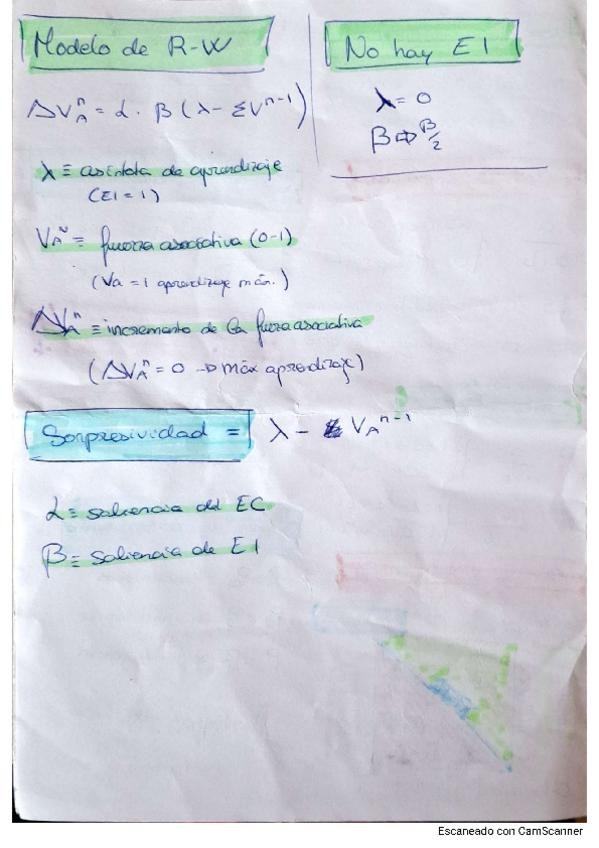 Modelo de R-W
ΔV_A^n = α · β (λ - ΣV^n-1)
λ ≡ asíntota de aprendizaje
(EI = 1)
V_A^n ≡ fuerza asociativa (0-1)
(Va = 1 aprendizaje máx.)
ΔV_A^n ≡ incremento de la fuerza asociativa
(ΔV_A^n = 0 → máx aprendizaje)
No hay EI
λ = 0
β ⇒ β/2
Sorpresividad = λ - V_A^n-1
α ≡ saliencia del EC
β ≡ saliencia de EI
Escaneado con CamScanner